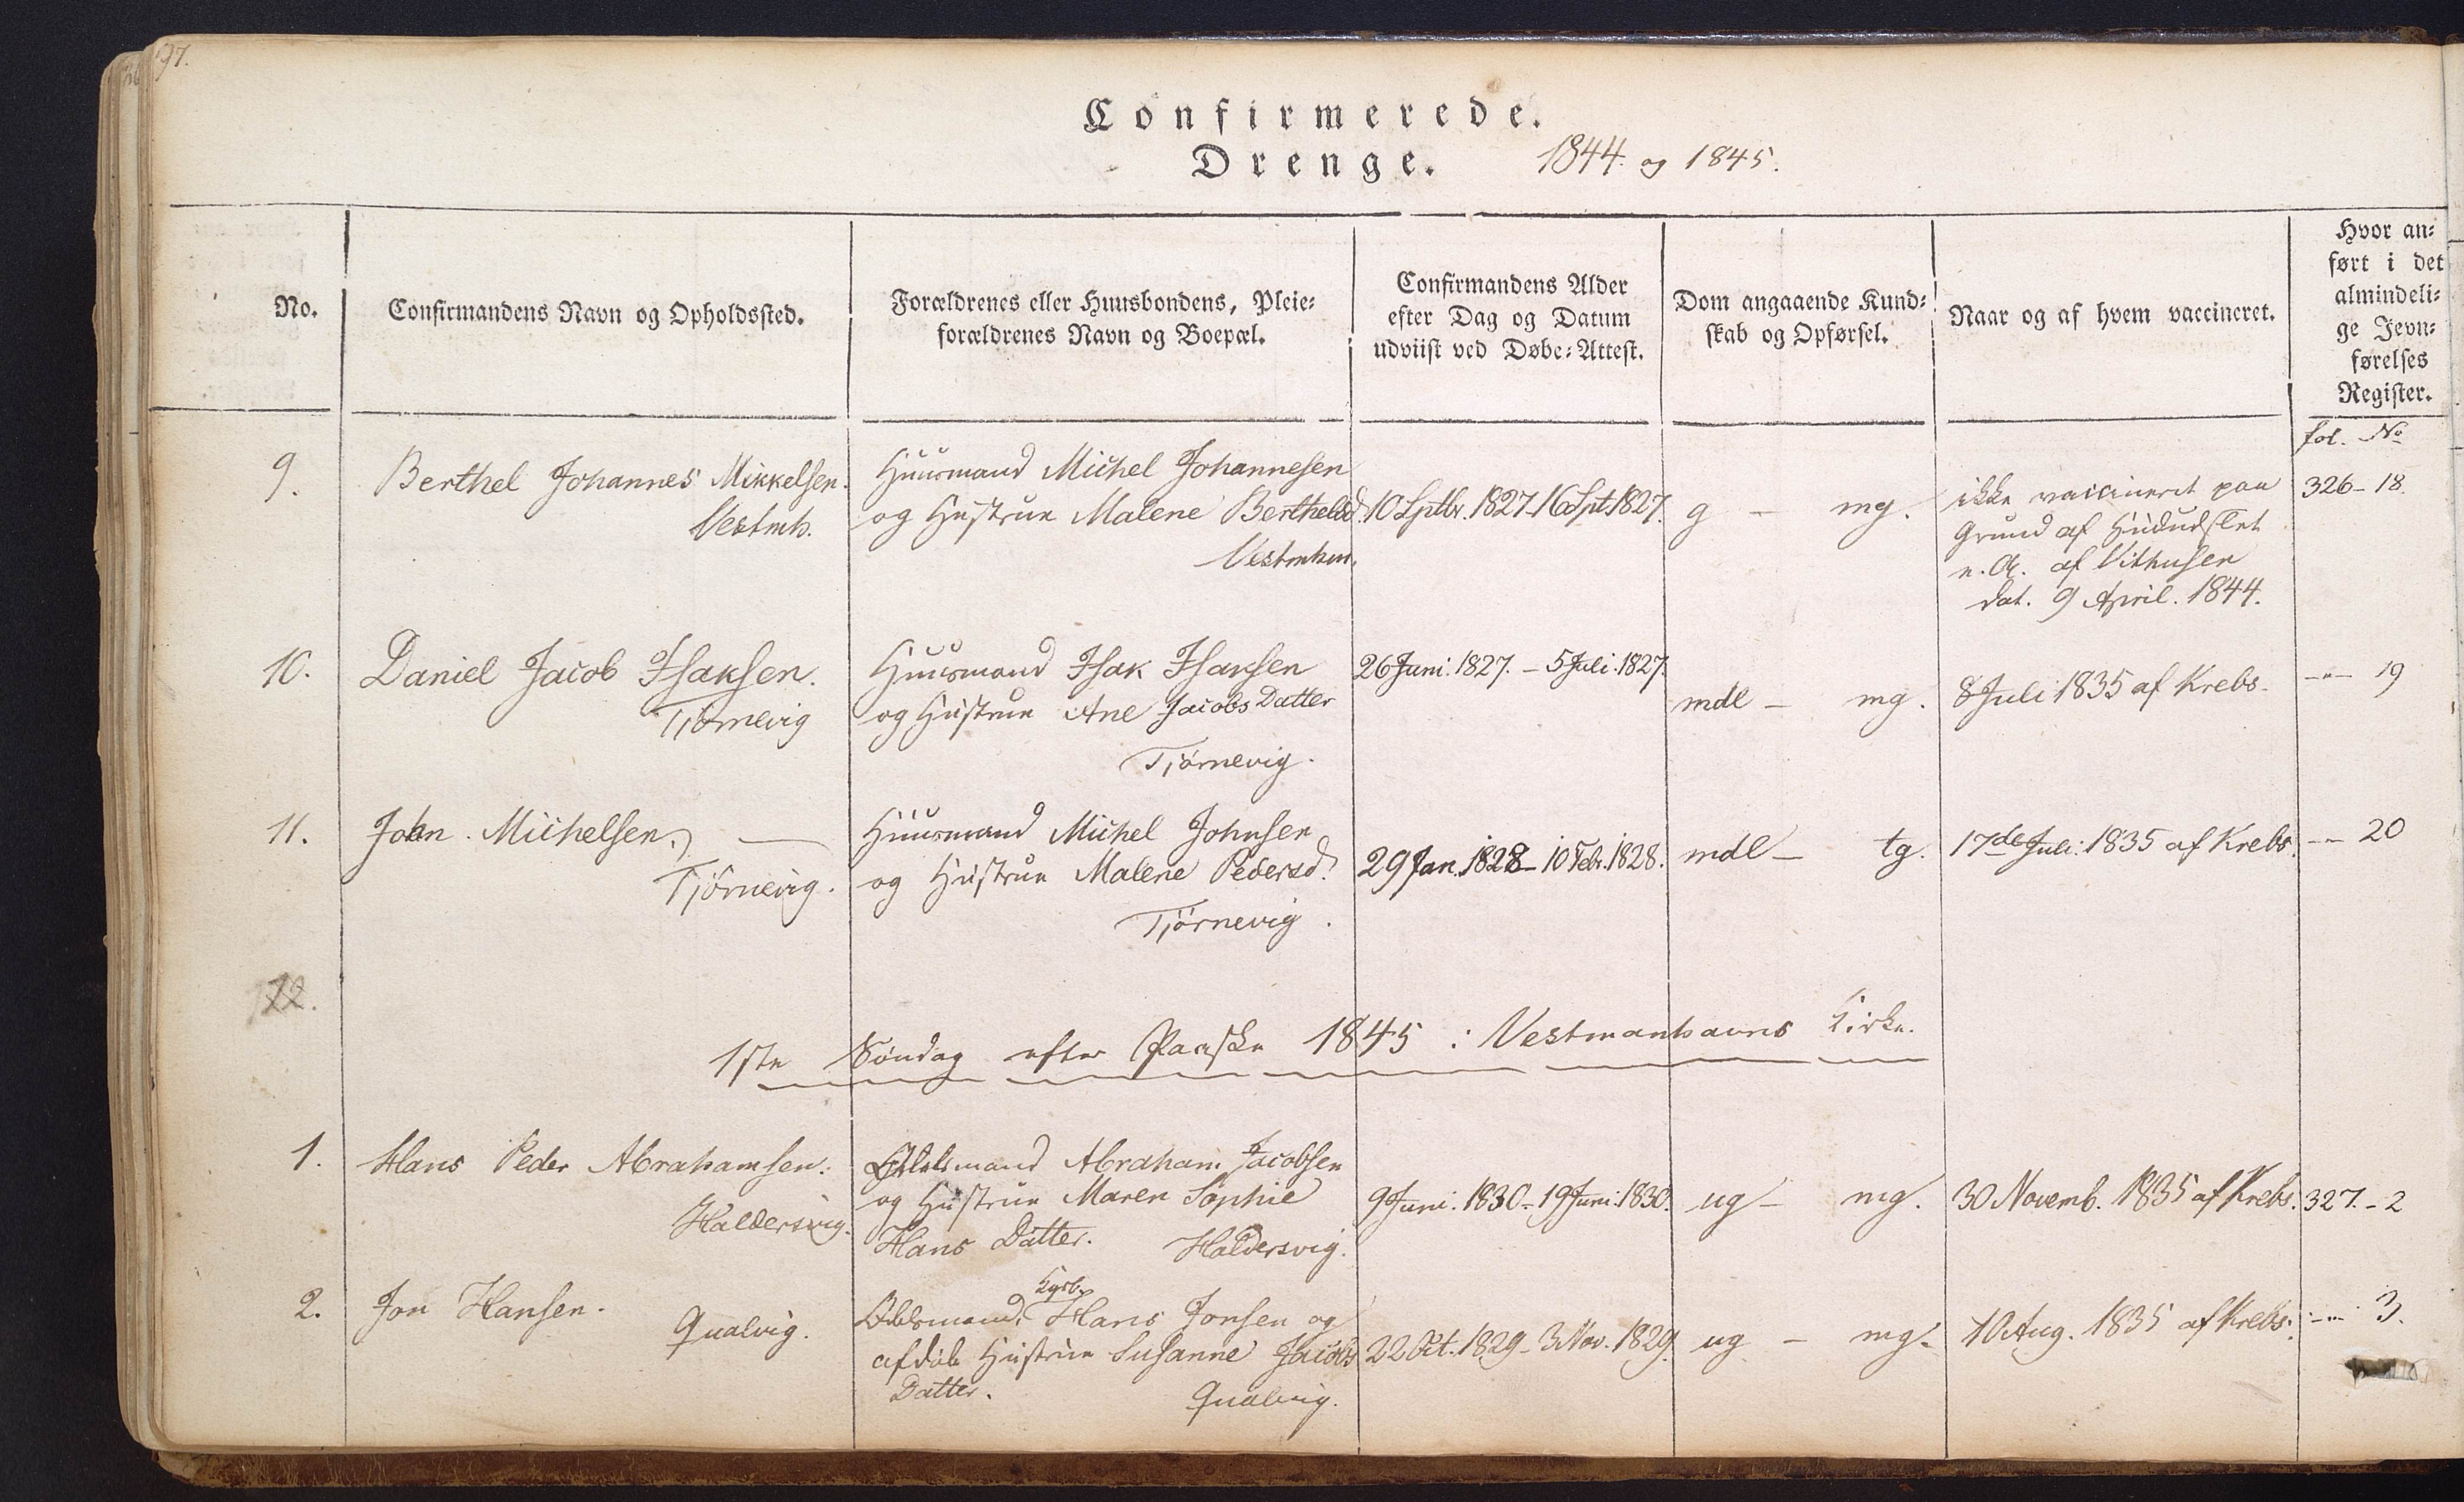 97.
Confirmerede.
Drenge. 1844. og 1845.
No.
Confirmandens Navn og Opholdssted.
Forældrenes eller Huusbondens, Pleie-
forældrenes Navn og Boepæl.
Confirmandens Alder
efter Dag og Datum
udviist ved Døbe-Attest.
Dom angaaende Kund-
skab og Opførsel.
Naar og af hvem vaccineret.
Hvor an-
ført i det
almindeli-
ge Jevn-
førelses
Register.
fol. No
9.
Berthel Johannes Mikkelsen.
Vestmh.
Huusmand Michel Johannesen
og Hustrue Malene Bertheld.
Vestmhn.
10 Sptbr. 1827 - 16 Spt. 1827.
g - mg.
ikke vaccineret paa
Grund af Hududslet
e. A. af
dat. 9 April. 1844.
326 - 18.
10.
Daniel Jacob Isaksen.
Tjørnevig
Huusmand Isak Isaksen
og Hustrue Ane Jacobs Datter
Tjørnevig.
26 Juni. 1827. - 5 Juli. 1827.
mdl - mg.
8 Juli 1835 af Krebs.
-"- 19
11.
John. Michelsen. —
Tjørnevig.
Huusmand Michel Johnsen
og Hustrue Malene Pedersd.
Tjørnevig.
29 Jan. 1828 - 10 Febr. 1828.
mdl - tg.
17de Juli. 1835 af Krebs.
-"- 20
12.
1ste Søndag efter Paaske 1845 : Vestmanhavns Kirke.
1.
Hans Peder Abrahamsen.
Haldersvig.
Odelsmand Abraham Jacobsen
og Hustrue Maren Sophie
Hans Datter. Haldersvig.
9 Juni. 1830 - 19 Juni. 1830.
ug - mg.
30 Novemb. 1835 af Krebs.
327. - 2
2.
Jon Hansen.
Qualvig.
Odelsmand, Hans Jonsen og
afdøde Hustrue Susanne Jacobs
Datter. Qualvig.
22 Oct. 1829 - 3 Nov. 1829.
ug - mg.
10 Aug. 1835 af Krebs.
-"- 3.